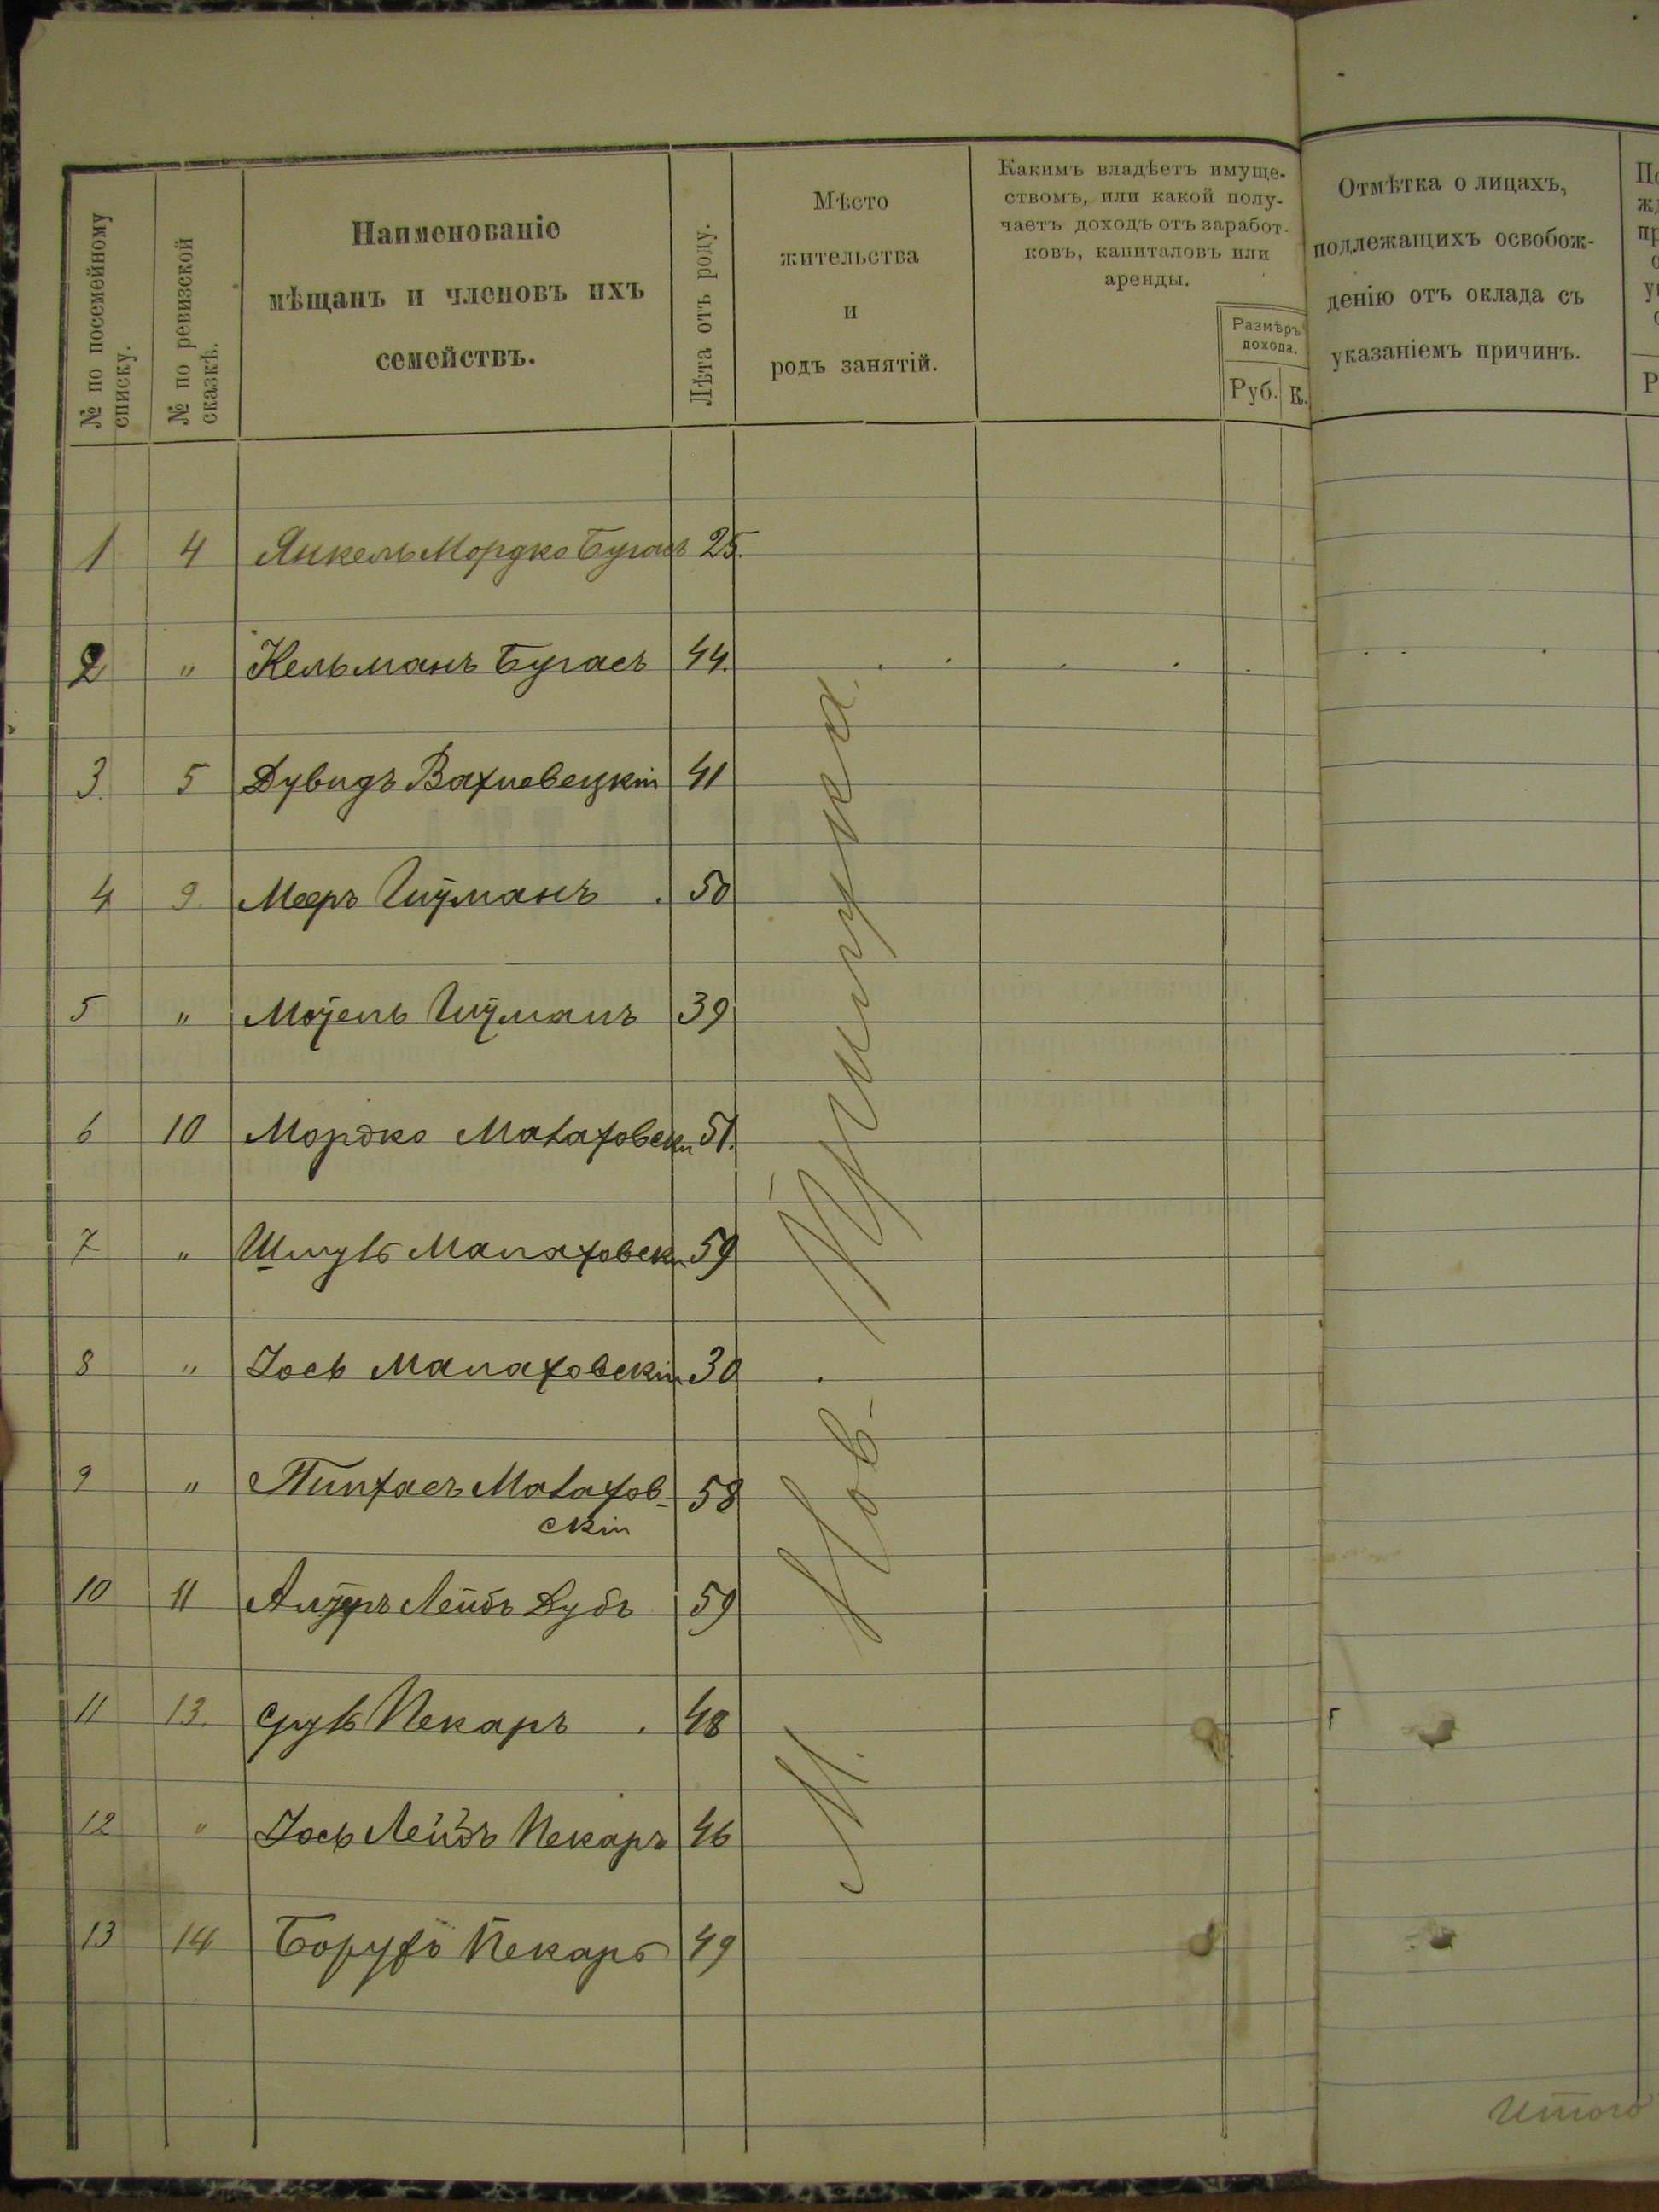 № по посемейному списку.
№ по ревизской сказкѣ.
Наименованіе
мѣщанъ и членовъ ихъ
семействъ.
Лѣта отъ роду.
Мѣсто
жительства
и
родъ занятій.
Какимъ владѣетъ имуще-
ствомъ, или какой полу-
чаетъ доходъ отъ заработ-
ковъ, капиталовъ или
аренды.
Размѣръ
дохода.
Руб. К.
Отмѣтка о лицахъ,
подлежащихъ освобож-
денію отъ оклада съ
указаніемъ причинъ.
1 4 Янкель Мордко Бугасъ 25.
2 " Кельманъ Бугасъ 44.
3. 5 Дувидъ Вахновецкій 41
4 9. Мееръ Шуманъ 50
5 " Шуманъ 39
6 10 Мордко Малаховскій 51.
7 " Шмуль Малаховскій 59
8 " Іось Малаховскій 30
9 " Пинхасъ Малахов-
скій 58
10 11 Лейбъ Дубъ 59
11 13. Сруль Пекаръ 48
12 " Іось Лейбъ Пекаръ 46
13 14 Борухъ Пекаръ 49
М. Нов-
Итого